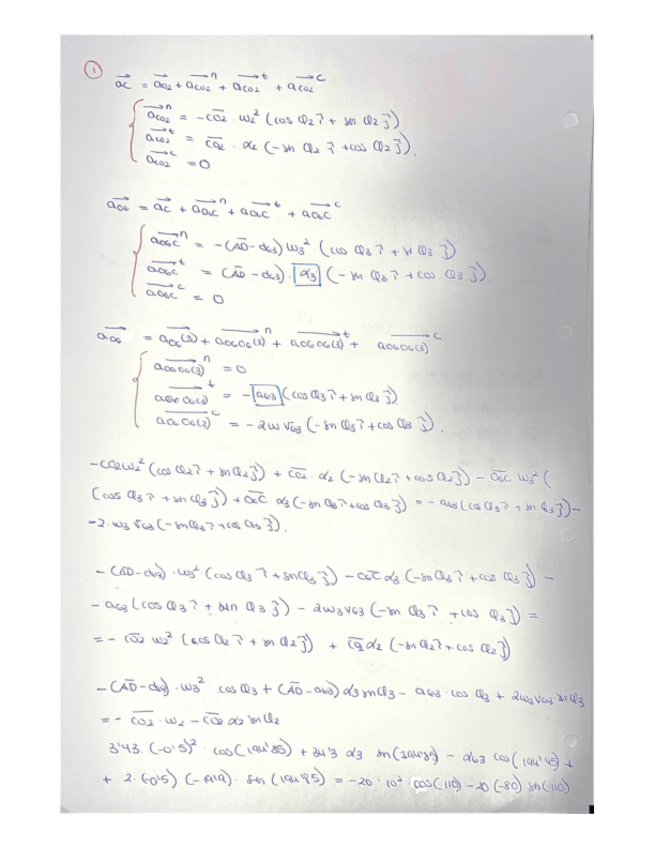 1
ac = ao2 + aco2^n + aco2^t + aco2^c
aco2^n = -co2 · ω2² (cos φ2 i + sn φ2 j)
aco2^t = co2 · α2 (-sn φ2 i + cos φ2 j).
aco2^c = 0
ao6 = ac + ao6c^n + ao6c^t + ao6c^c
ao6c^n = -(AD - d63) ω3² · (cos φ3 i + sn φ3 j)
ao6c^t = (AD - d63) · α3 (-sn φ3 i + cos φ3 j).
ao6c^c = 0
ao6 = ao6(3) + ao6o6(3)^n + ao6o6(3)^t + ao6o6(3)^c
ao6o6(3)^n = 0
ao6o6(3)^t = -a63 (cos φ3 i + sn φ3 j)
ao6o6(3)^c = -2ω v63 (-sn φ3 i + cos φ3 j).
-co2 ω2² (cos φ2 i + sn φ2 j) + co2 · α2 (-sn φ2 i + cos φ2 j) - o6c ω3² (
(cos φ3 i + sn φ3 j) + o6c α3 (-sn φ3 i + cos φ3 j) = -a63 (cos φ3 i + sn φ3 j) -
-2 · ω3 v63 (-sn φ3 i + cos φ3 j).
-(AD - d63) · ω3² (cos φ3 i + sn φ3 j) - o6c α3 (-sn φ3 i + cos φ3 j) -
-a63 (cos φ3 i + sen φ3 j) - 2ω3 v63 (-sn φ3 i + cos φ3 j) =
= -co2 ω2² (cos φ2 i + sn φ2 j) + α2 (-sn φ2 i + cos φ2 j)
-(AD - d63) · ω3² cos φ3 + (AD - a63) α3 sn φ3 - a63 · cos φ3 + 2ω3 v63 sn φ3
= -co2 · ω2 - co2 α2 sn φ2
3'43 · (-0'5)² · cos( + 3 α3 sn( - a63 cos( +
+ 2 · (-0'5) ( · sen( = -20 · 10² cos(110) - 20 (-80) sn(110)